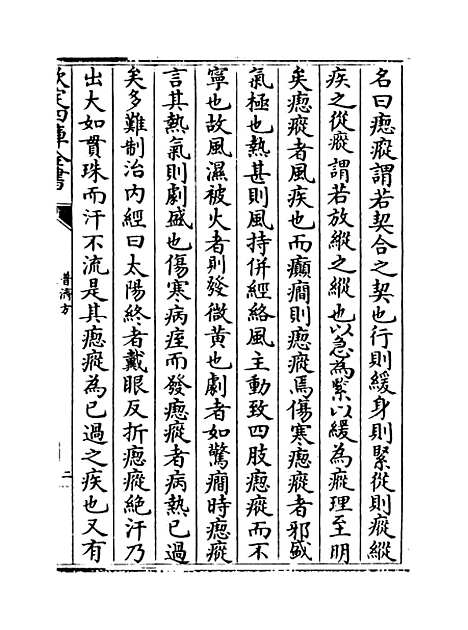 名曰瘛瘲謂若契合之契也行則緩身則緊從則瘲縱
疾之從瘲謂若放縱之縱也以急為緊以緩為瘲理至明
矣瘛瘲者風疾也而癲癎則瘛瘲焉傷寒瘛瘲者邪盛
氣極也熱甚則風持併經絡風主動致四肢瘛瘲而不
寧也故風濕被火者則發微黄也劇者如驚癎時瘛瘲
言其熱氣則劇盛也傷寒病痓而發瘛瘲者病熱已過
矣多難制治内經曰太陽終者戴眼反折瘛瘲絶汗乃
出大如貫珠而汗不流是其瘛瘲為已過之疾也又有
欽定四庫全書
普濟方
二